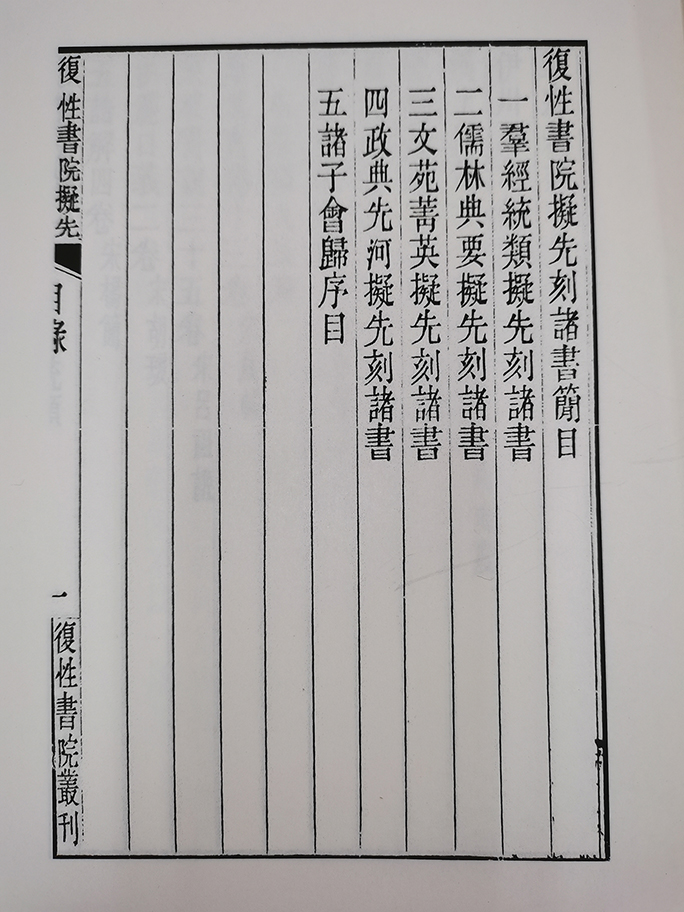 復性書院擬先刻諸書簡目
一羣經統類擬先刻諸書
二儒林典要擬先刻諸書
三文苑菁英擬先刻諸書
四政典先河擬先刻諸書
五諸子會歸序目
復性書院擬先
目錄
一
復性書院叢刊